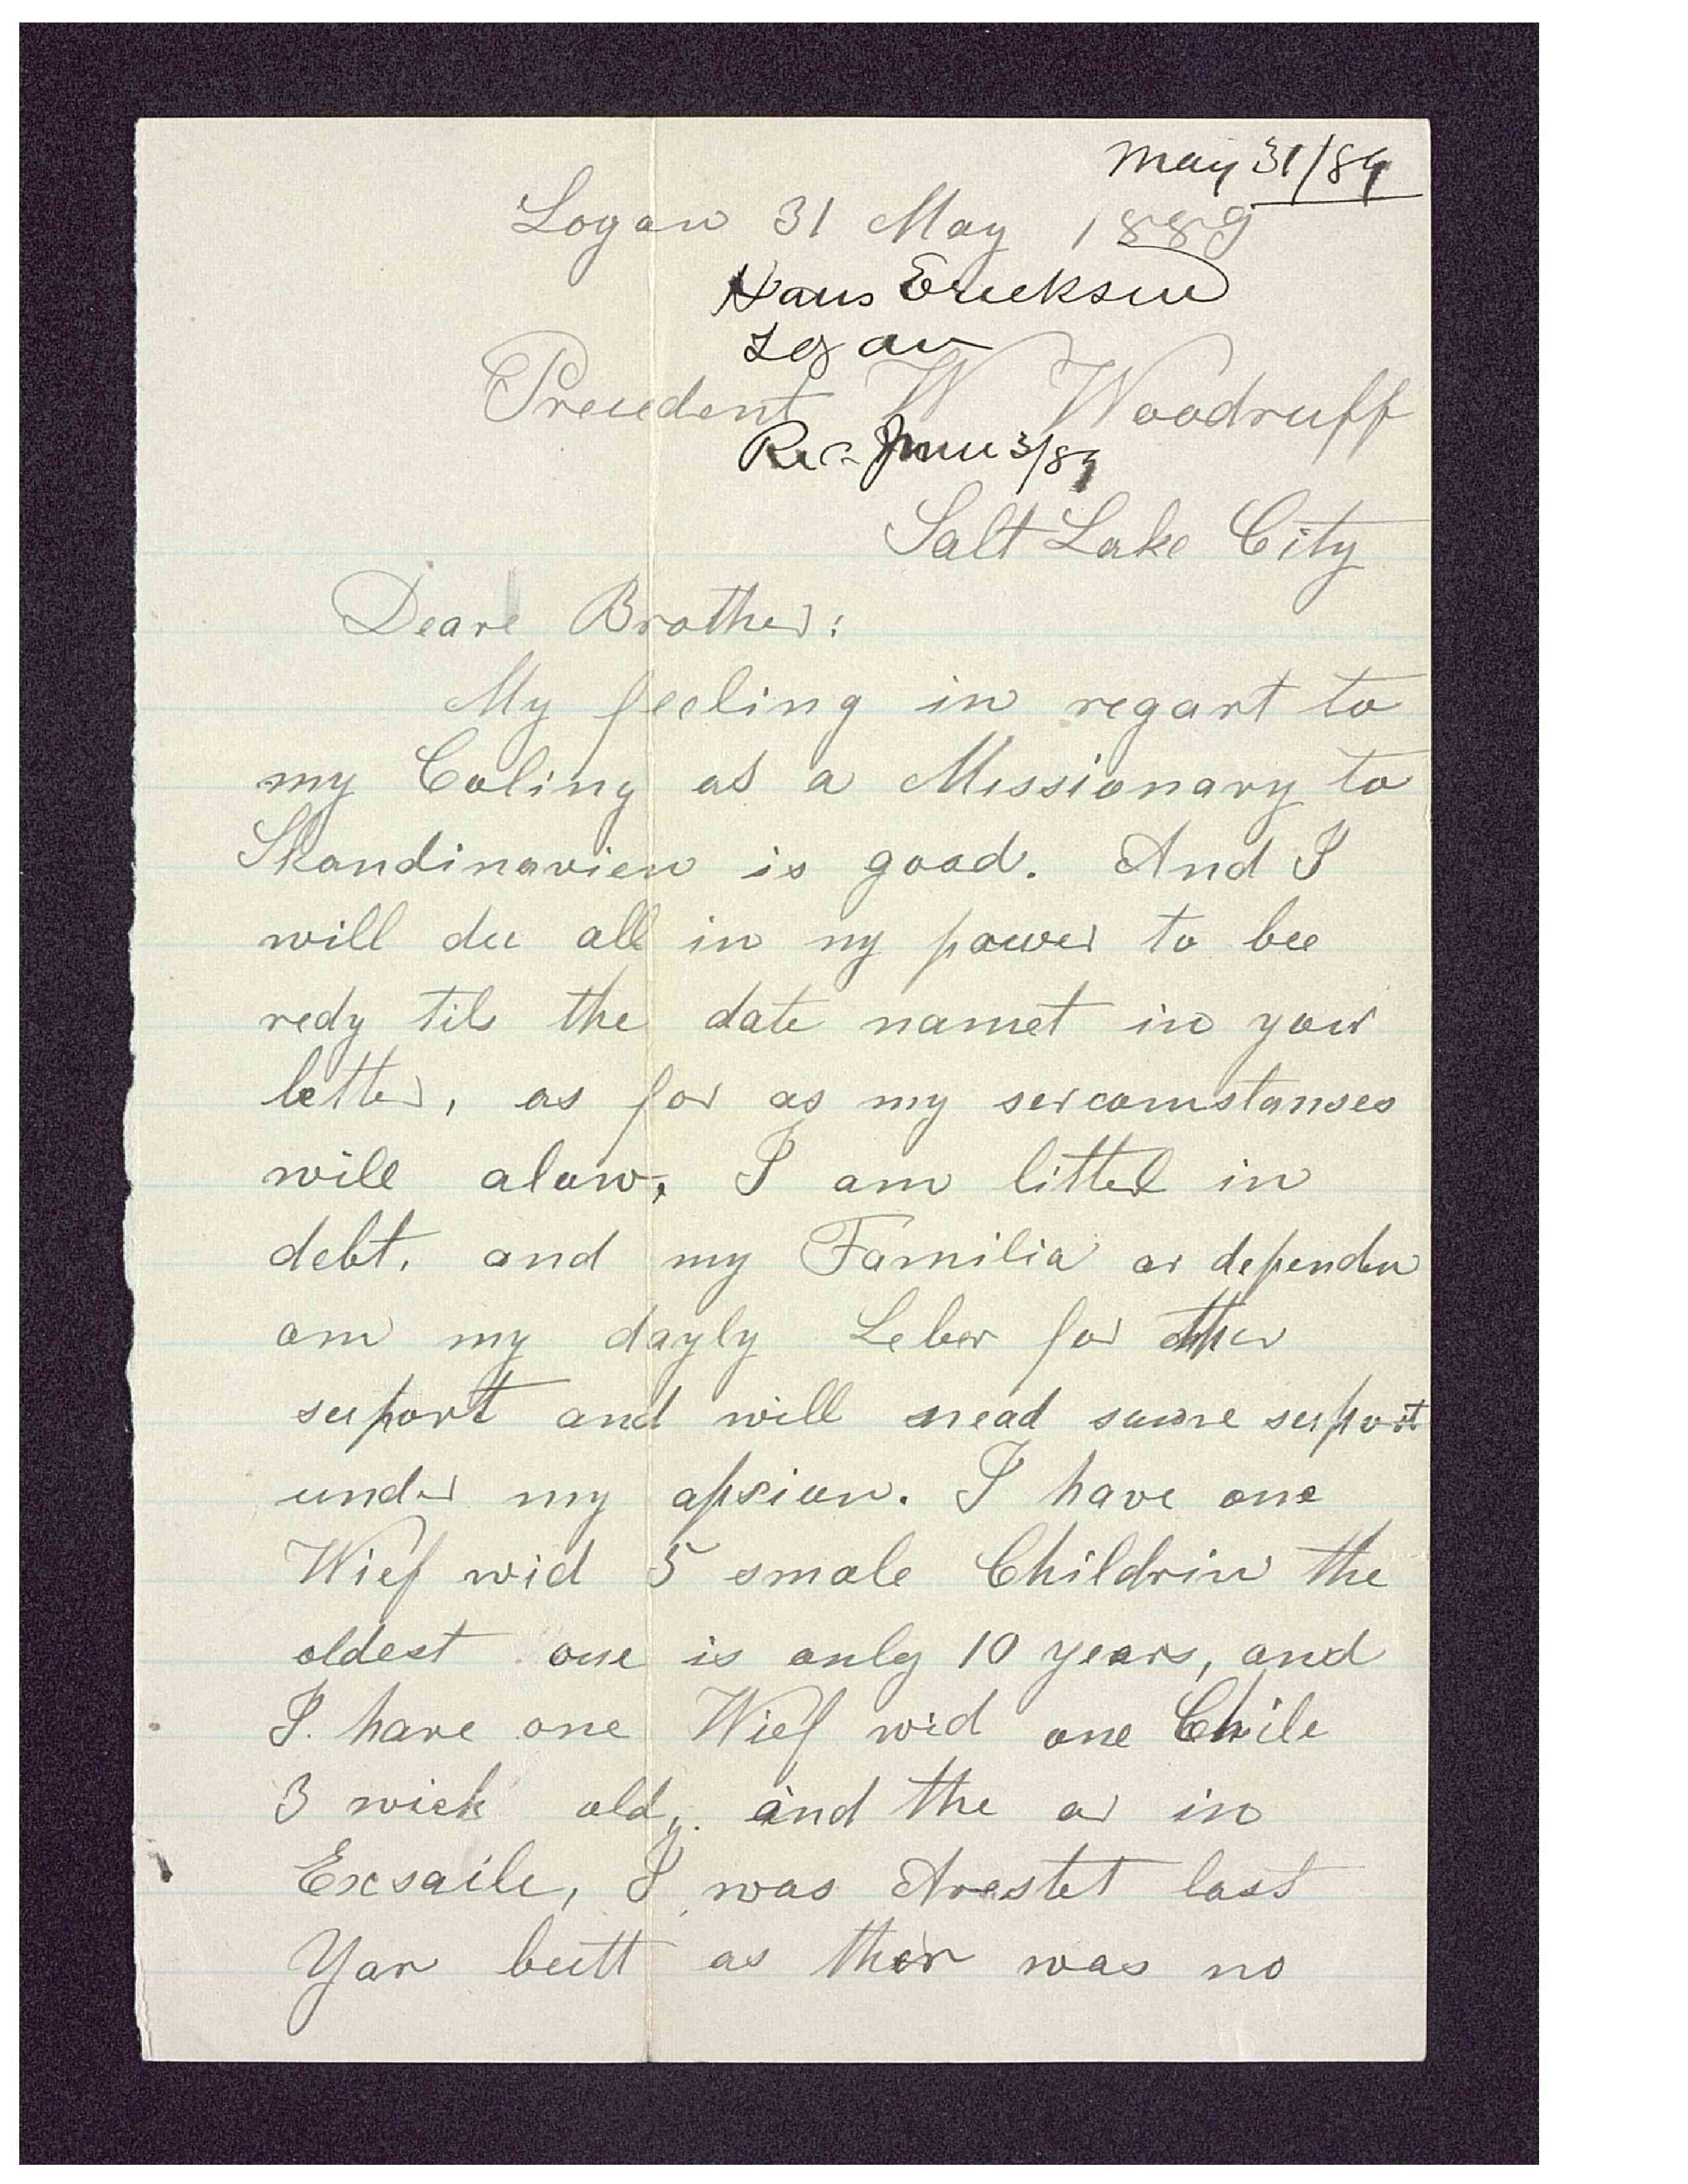 May 31/89
Logan 31 May 1889
Hans Ericksen
Logan
President W Woodruff
Rec. June 3/89
Salt Lake City
Deare Brother:
My feeling in regart to
my Coling as a Missionary to
Skandinavien is good. And I
will du all in ny power to bee
redy til the date namet in your
letter, as far as my sercomstanses
will alow, I am littel in
debt. and my Familia ar dependen
om my dayly Leber for ther
suport and will nead sume suport
under my apsion. I have one
Wief wid 5 smale Childrin the
oldest one is only 10 years, and
I have one Wief wid one Chile
3 wick old, and the ar in
Exsaile, I was Arestet last
Yar butt as ther was no